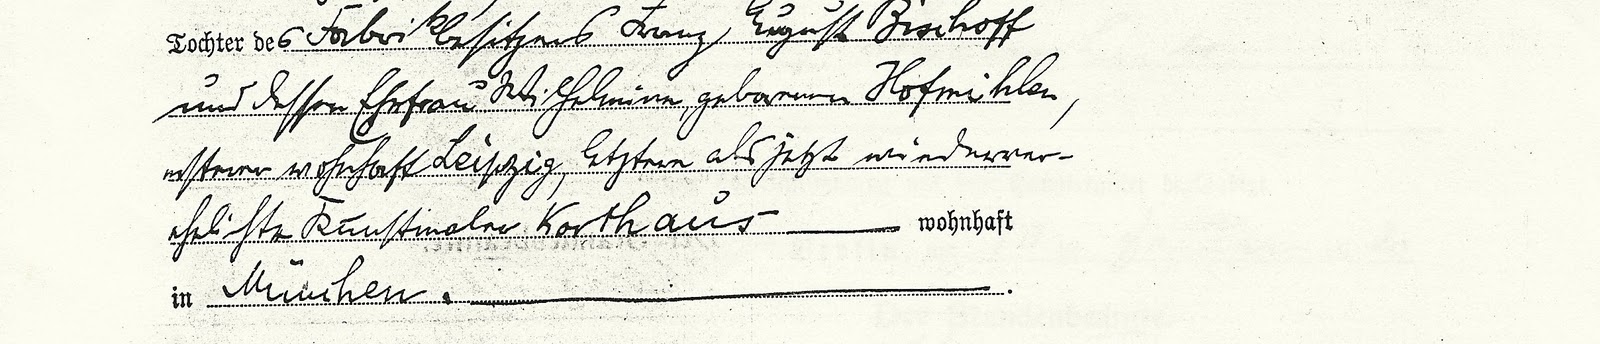 Tochter des Fabrikbesitzers Franz August Bischoff
und dessen Ehefrau Wilhelmine, geborenen Hofmühlen,
ersterer wohnhaft Leipzig, letztere als jetzt wiederver-
ehelichte Kunstmaler Korthaus wohnhaft
in München.